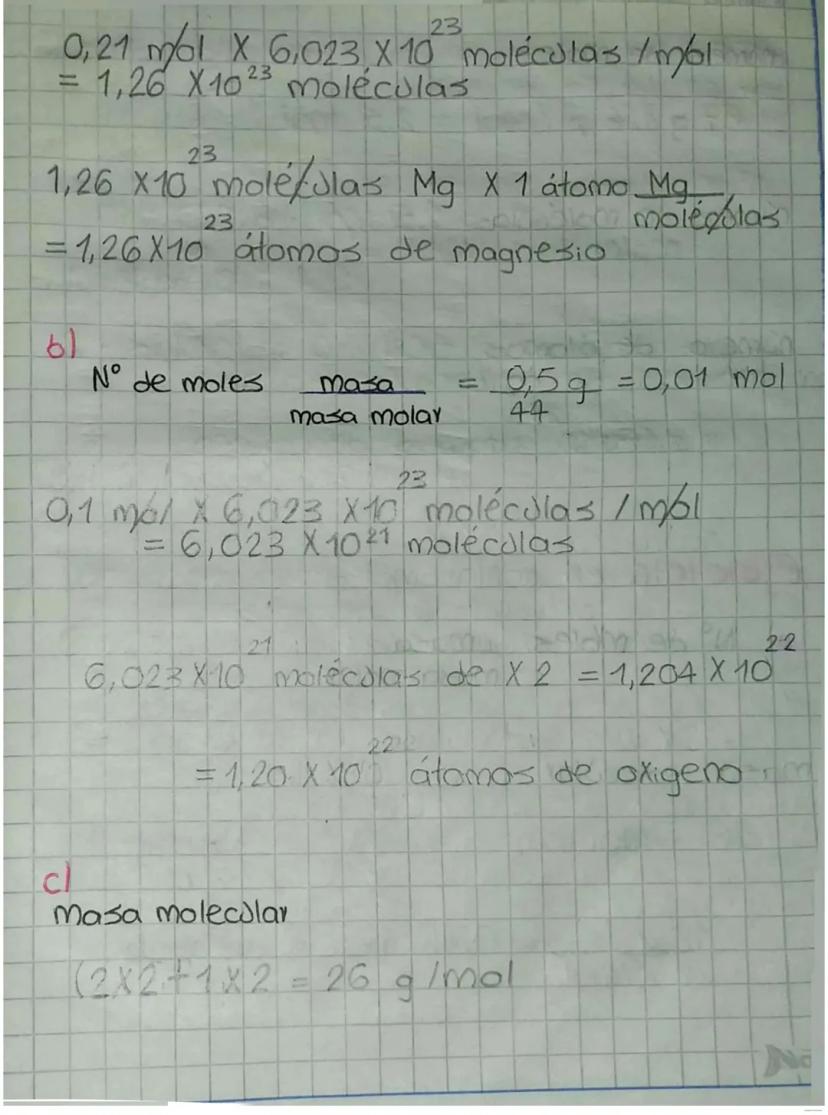 0,21 mol X 6,023 X 10²³ moléculas / mol
= 1,26 X 10²³ moléculas
1,26 X 10²³ moléculas Mg X 1 átomo Mg / moléculas
= 1,26 X 10²³ átomos de magnesio
b)
N° de moles masa / masa molar = 0,5 g / 44 = 0,01 mol
0,1 mol X 6,023 X 10²³ moléculas / mol
= 6,023 X 10²¹ moléculas
6,023 X 10²¹ moléculas de X 2 = 1,204 X 10²²
= 1,20 X 10²² átomos de oxigeno
c)
masa molecular
(2X2+1X2 = 26 g/mol